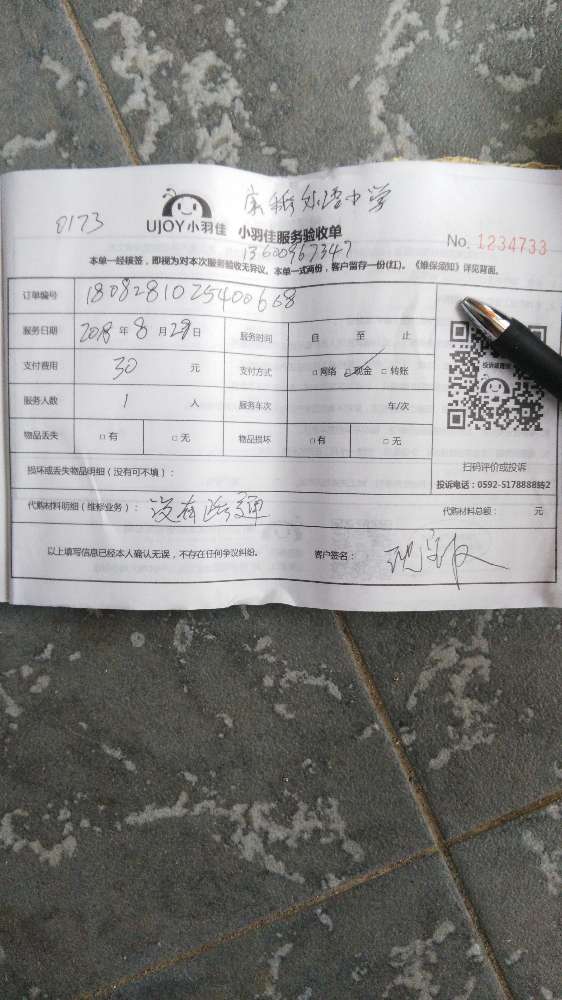 0173
UJOY小羽佳 小羽佳服务验收单
外语中学
13600967347
No. 1234733
本单一经核签，即视为对本次服务验收无异议。本单一式两份，客户留存一份(红)。《维保须知》详见背面。
订单编号 1808281025400668
服务日期 2018年8月29日 服务时间 自 至 止
支付费用 30 元 支付方式 □网络 □现金 □转账
服务人数 1 人 服务车次 车/次
物品丢失 □有 □无 物品损坏 □有 □无
扫码评价或投诉
投诉电话：0592-5178888转2
损坏或丢失物品明细（没有可不填）：
代购材料明细（维修业务）： 没有疏通 代购材料总额： 元
以上填写信息已经本人确认无误，不存在任何争议纠纷。 客户签名：